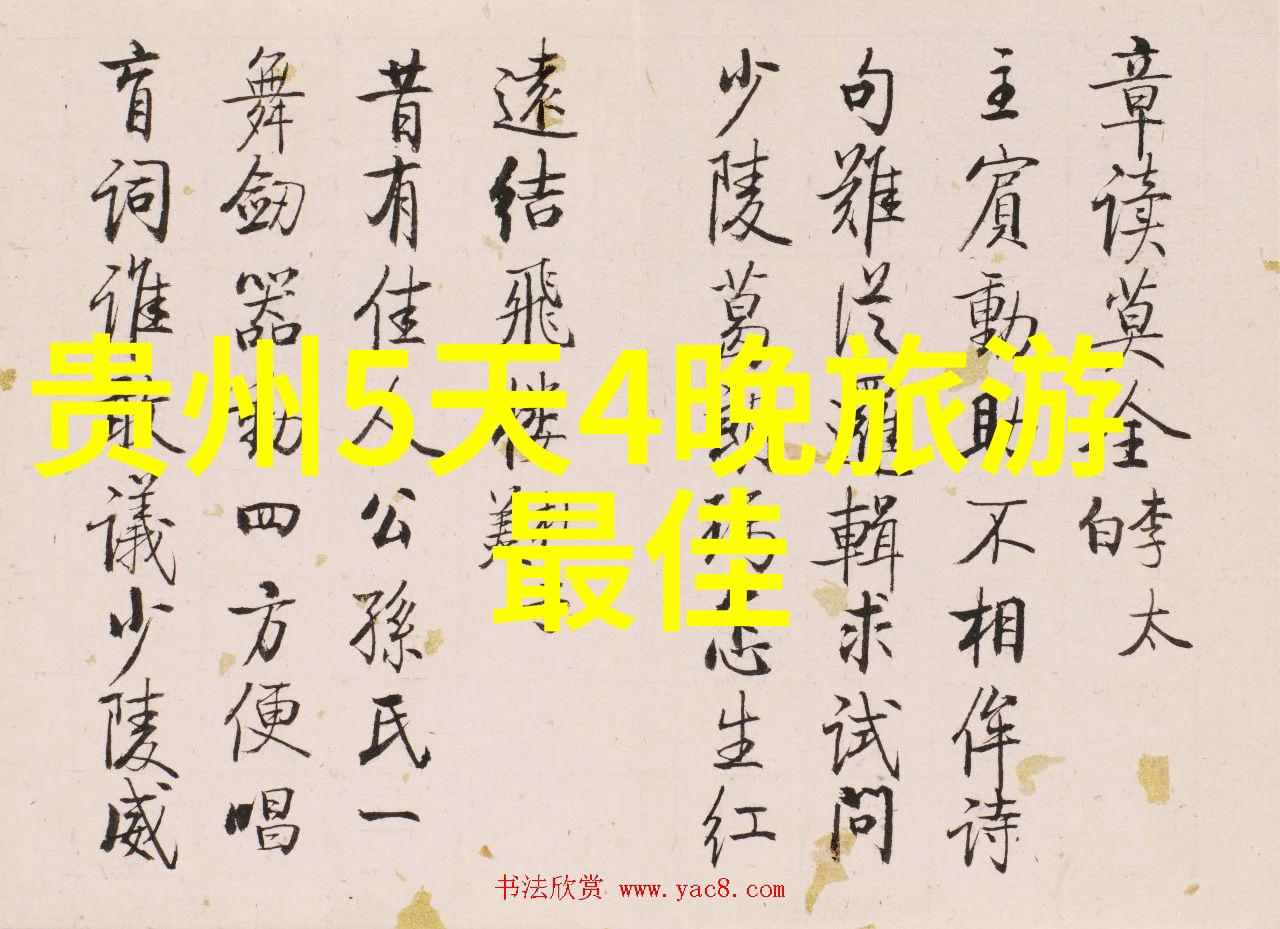 章读莫全李太白
主賓動助不相侔诗
句難従灑輯求试问
少陵葛
生红
遠结飛樓
昔有佳人公孫氏一
舞劒器動四方便唱
盲词谁敢議少陵威
贵州5天4晚旅游
最佳
书法欣赏 www.yac8.com